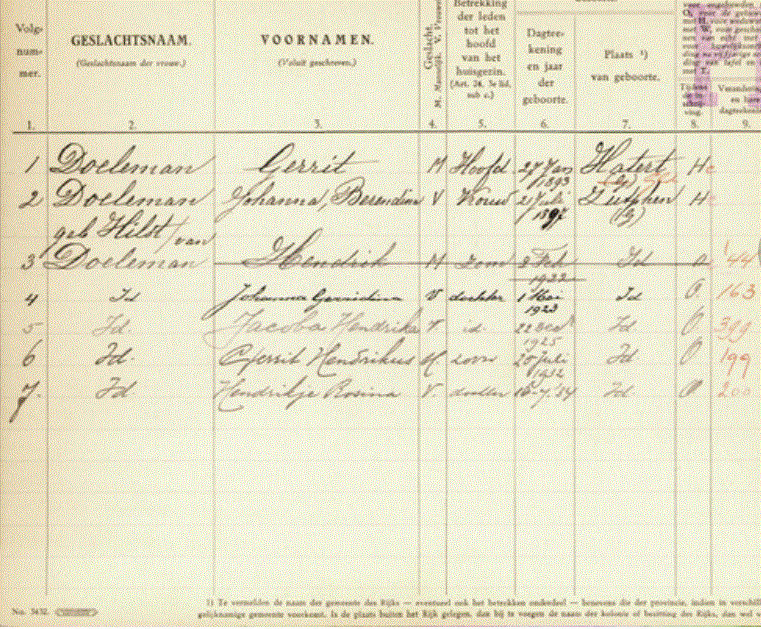 Volg-
num-
mer.
GESLACHTSNAAM.
(Geslachtsnaam der vrouw.)
VOORNAMEN.
(Voluit geschreven.)
Geslacht.
M. Mannelijk. V. Vrouwelijk
Betrekking
der leden
tot het
hoofd
van het
huisgezin.
(Art. 24, 3e lid,
sub c.)
Dagtee-
kening
en jaar
der
geboorte.
Plaats ¹)
van geboorte.
1. 2. 3. 4. 5. 6. 7. 8. 9.
1 Doeleman Gerrit M Hoofd 27 Jan 1893 Hatert H
2 Doeleman Johanna, Berendina V Vrouw 2 Juli 1897 Zutphen (G) H
geb Hilst/van
3 Doeleman Hendrik M zoon 2 Feb 1922 Id O 44
4 Id Johanna Gerridina V dochter 1 Mei 1923 Id O. 163
5 Id. Jacoba Hendrika V. id. 22 Dec 1925 Id O. 399
6 Id. Gerrit Hendrikus M. zoon 20 Juli 1932 Id O 199
7. Id Hendrikje Rosina V. dochter 16-7-'34 Id. O 200
No. 3432.
1) Te vermelden de naam der gemeente des Rijks — eventueel ook het betrokken onderdeel — benevens die der provincie, indien in verschill
gelijknamige gemeente voorkomt. Is de plaats buiten het Rijk gelegen, dan bij te voegen de naam der kolonie of bezitting des Rijks, dan wel v